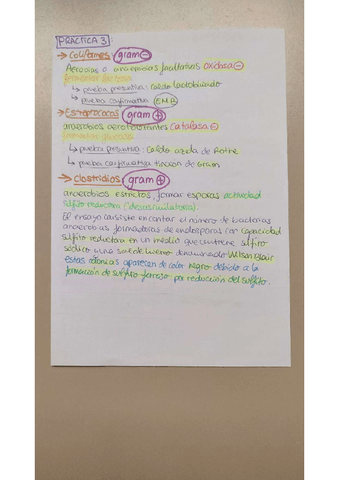 PRACTICA 3
→ Coliformes gram ⊖
Aerobias o anaerobias facultativas oxidasa ⊖
fermentar lactosa
↳ prueba presuntiva: Caldo lactobiliado
↳ prueba confirmativa EMB
→ Estreptococos gram ⊕
anaerobios aerotolerantes Catalasa ⊖
fermentar glucosa
↳ prueba presuntiva: Caldo azida de Rothe
↳ prueba confirmativa tincion de Gram
→ Clostridios gram ⊕
anaerobios estrictos, formar esporas actividad
sulfito reductora
El ensayo consiste en contar el número de bacterias
anaerobias formadoras de endosporas con capacidad
sulfito reductora en un medio que contiene sulfito
sódico y una sal de hierro denominado Wilson Blair
estas colonias aparecen de color Negro debido a la
formación de sulfuro ferroso por reducción del sulfito.